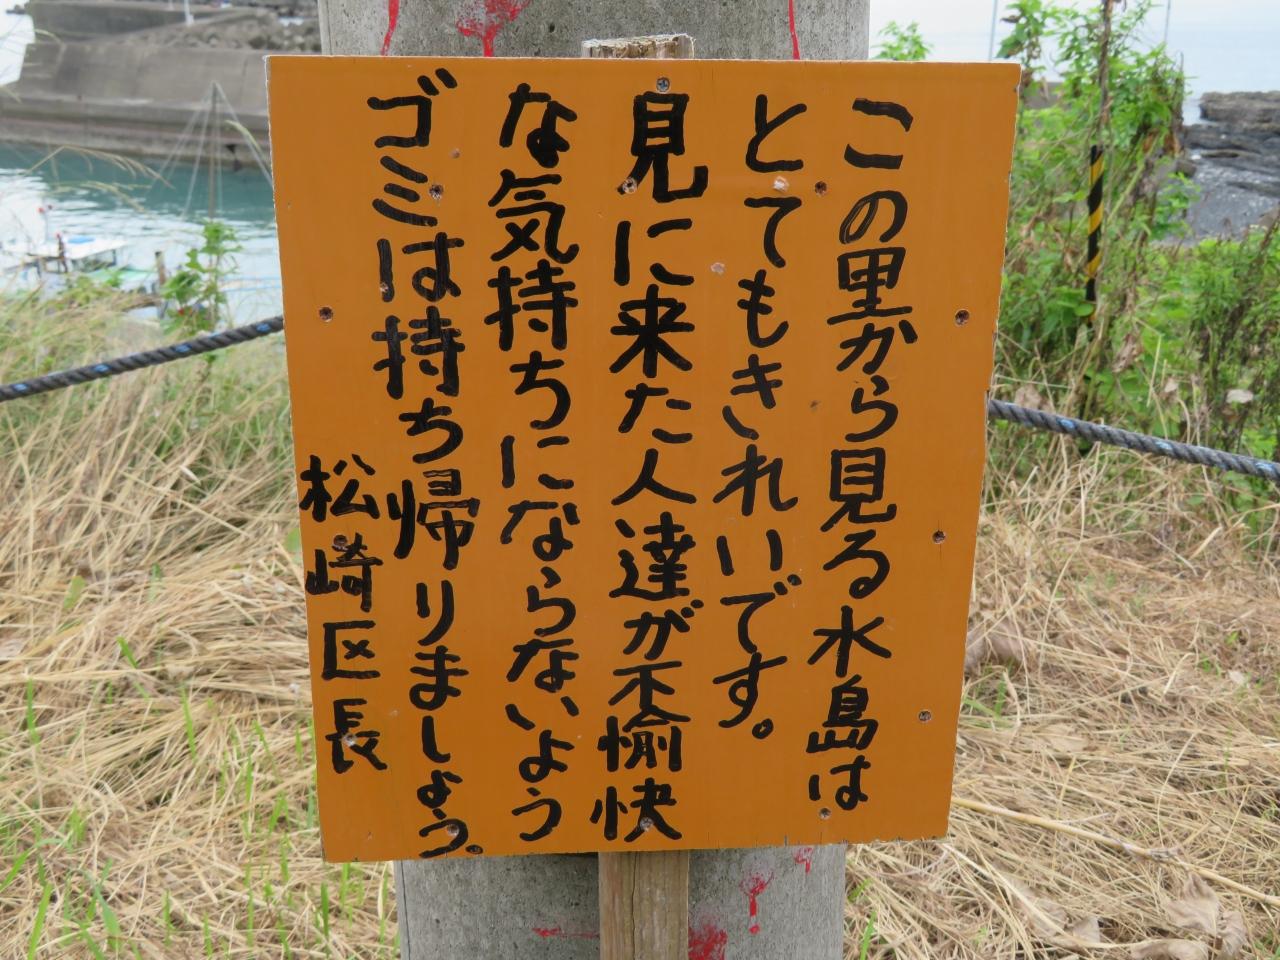 この里から見る水島は
とてもきれいです。
見に来た人達が不愉快
な気持ちにならないよう
ゴミは持ち帰りましょう。
松崎区長